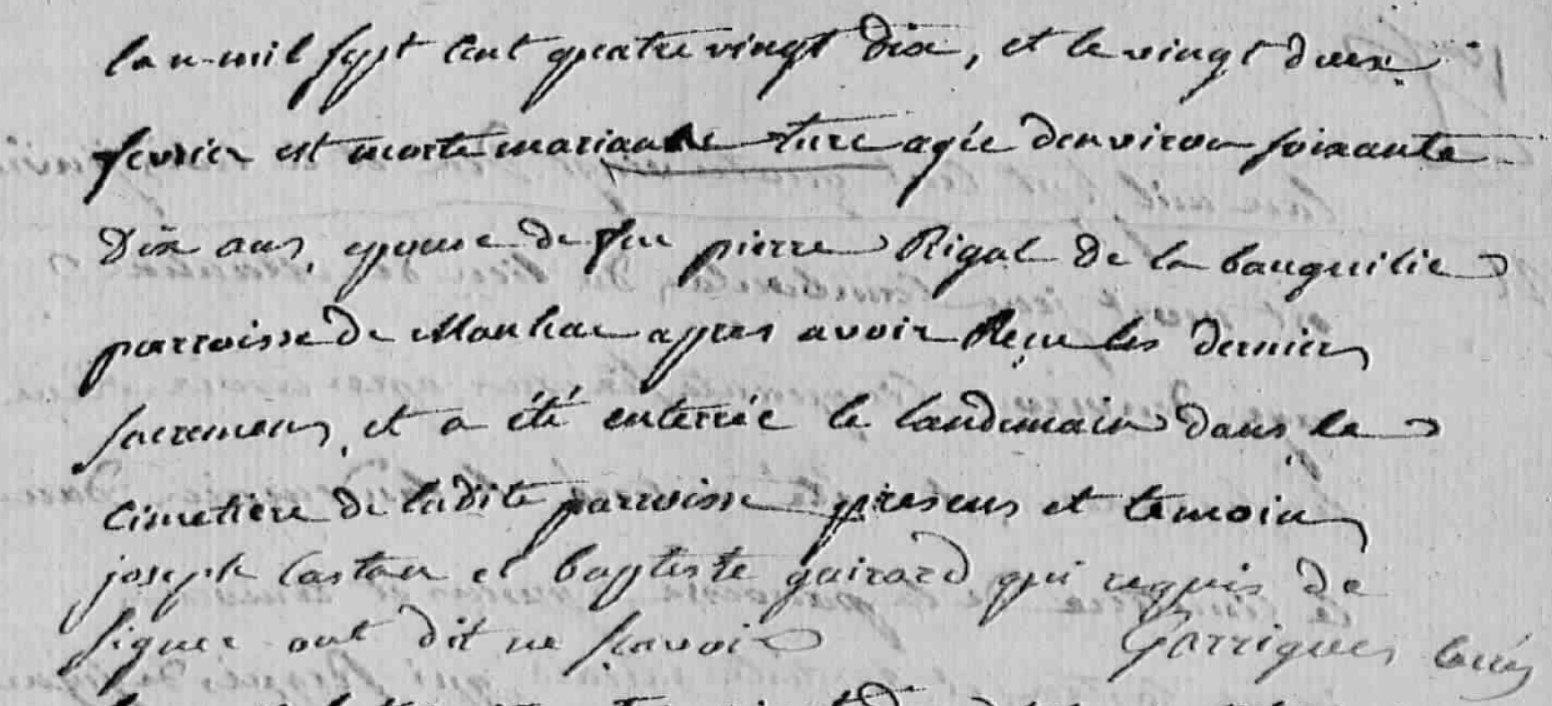 lan mil sept cent quatre vingt dix, et le vingt deux
fevrier est morte marianne turc agée denviron soixante
Dix ans, epouse de feu pierre Rigal de la bauquilie
parroisse de Maulhac apres avoir Reçu les derniers
sacremens, et a été enterrée le landemain dans le
cimetière de ladite parroisse presens et temoins
joseph Castan et baptiste guirard qui requis de
signer ont dit ne scavoir Garrigues curé